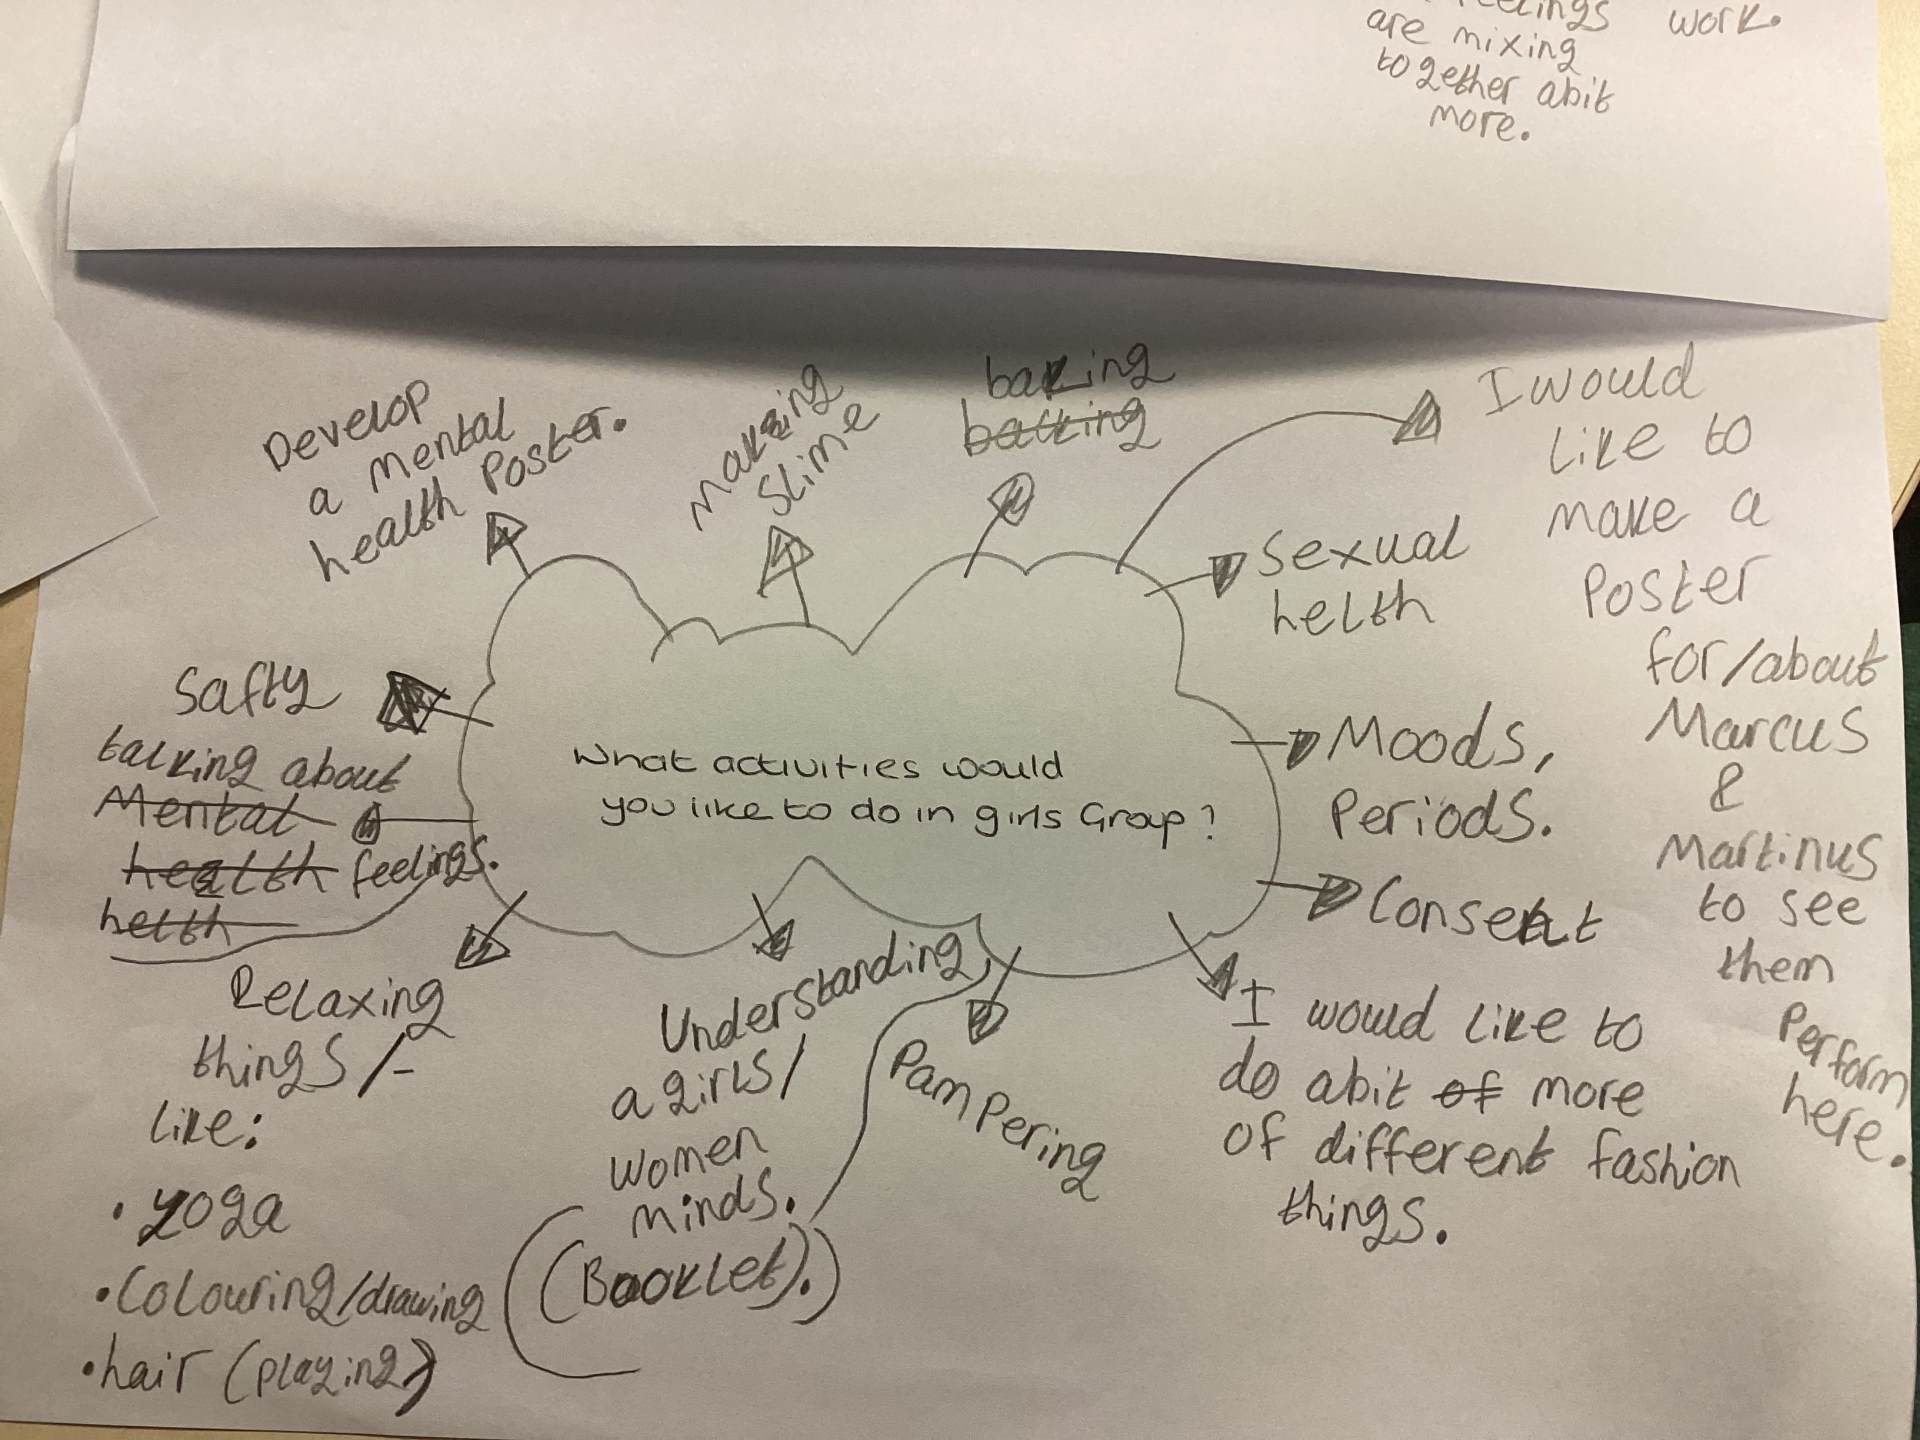 work.
are mixing
together abit
more.
Develop
a mental
health Poster.
making
Slime
baking
backing
I would
like to
make a
Poster
for/about
Marcus
&
Martinus
to see
them
Perform
here.
Sexual
helth
Moods,
Periods.
Consent
I would like to
do abit of more
of different fashion
things.
Pampering
Understanding
a girls/
women
minds.
(Booklet).)
Relaxing
things/-
like:
• yoga
• Colouring/drawing
• hair (playing)
Safty
talking about
Mental
health feelings.
helth
What activities would
you like to do in girls Group?